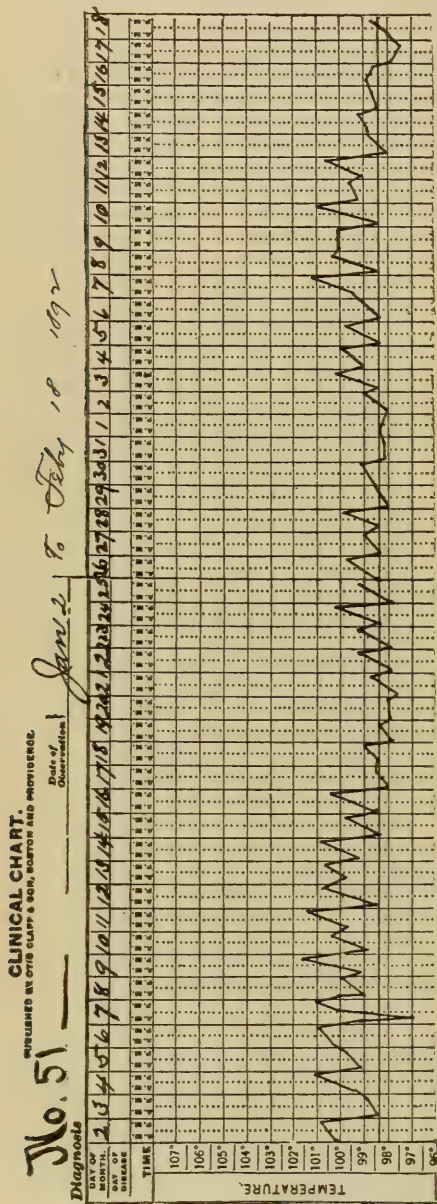 CLINICAL CHART.
PUBLISHED BY OTIS CLAPP & SON, BOSTON AND PROVIDENCE.
No. 51
Diagnosis
Date of Observation
Jan 2 To Feby 18 1892
DAY OF MONTH. 2 3 4 5 6 7 8 9 10 11 12 13 14 15 16 17 18 19 20 21 22 23 24 25 26 27 28 29 30 31 1 2 3 4 5 6 7 8 9 10 11 12 13 14 15 16 17 18
DAY OF DISEASE
TIME
TEMPERATURE.
107°
106°
105°
104°
103°
102°
101°
100°
99°
98°
97°